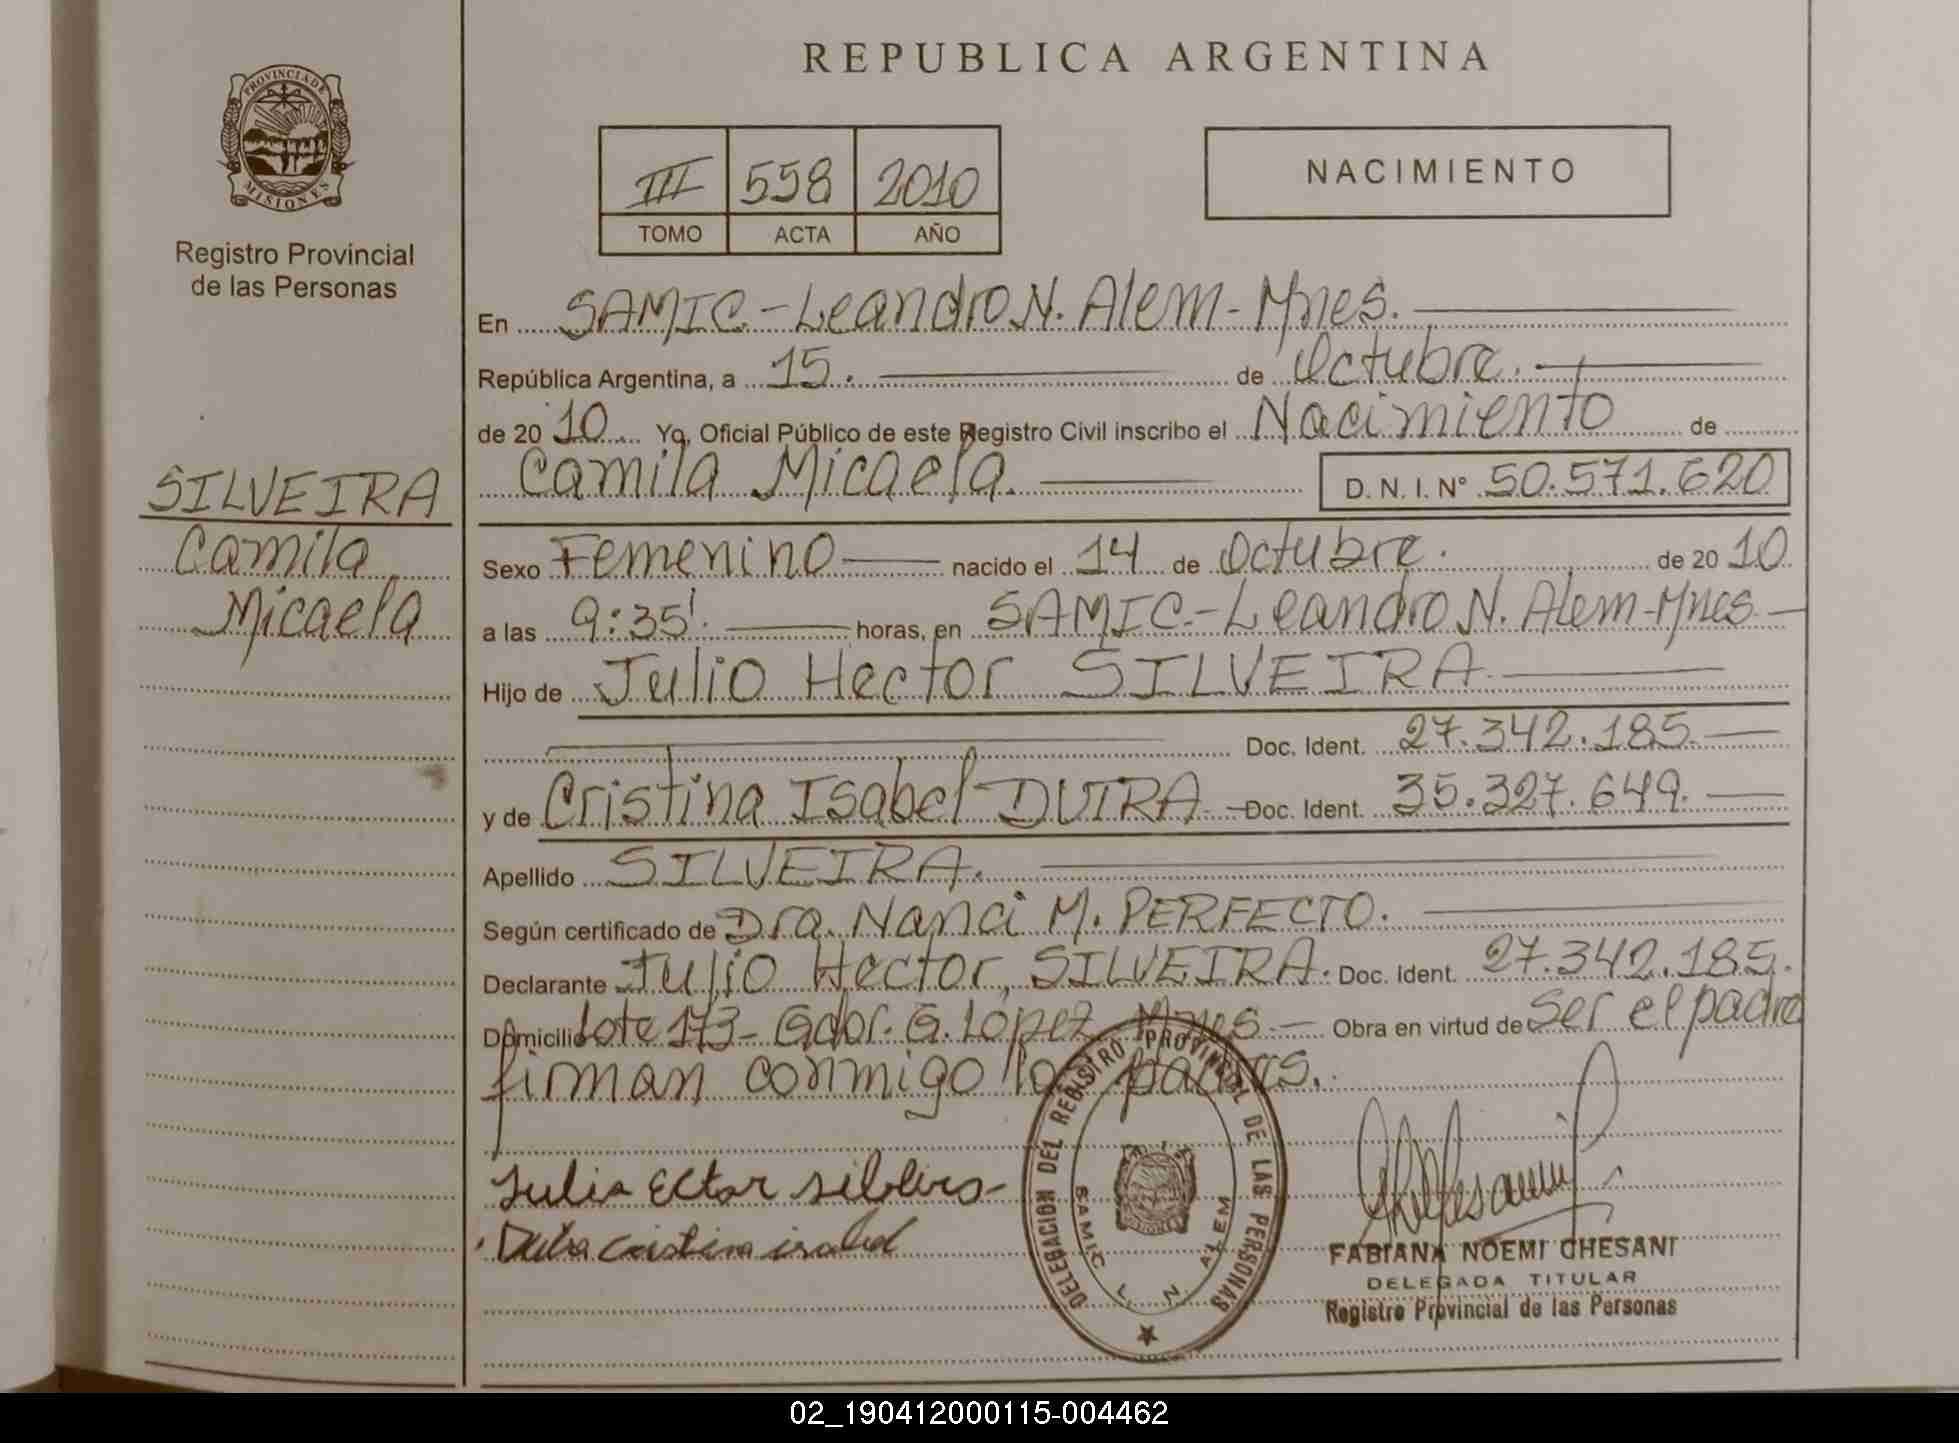 REPUBLICA ARGENTINA
PROVINCIA DE
MISIONES
Registro Provincial
de las Personas
III 558 2010
TOMO ACTA AÑO
NACIMIENTO
SILVEIRA
Camila
Micaela
En SAMIC-Leandro N. Alem-Mnes.
República Argentina, a 15. de Octubre.
de 20 10 Yo, Oficial Público de este Registro Civil inscribo el Nacimiento de
Camila Micaela. D. N. I. N° 50.571.620
Sexo Femenino nacido el 14 de Octubre. de 20 10
a las 9:35'. horas, en SAMIC.-Leandro N. Alem-Mnes
Hijo de Julio Hector SILVEIRA
Doc. Ident. 27.342.185.
y de Cristina Isabel DUTRA Doc. Ident. 35.327.649.
Apellido SILVEIRA.
Según certificado de Dra. Nanci M. PERFECTO.
Declarante Julio Hector, SILVEIRA. Doc. Ident. 27.342.185.
Domicilio Lote 173- Gdor. G. López Mnes. Obra en virtud de Ser el padre
firman conmigo los padres.
DELEGACION DEL REGISTRO PROVINCIAL DE LAS PERSONAS
SAMIC L. N. ALEM
Cristina isabel
FABIANA NOEMI CHESANI
DELEGADA TITULAR
Registro Provincial de las Personas
02_190412000115-004462